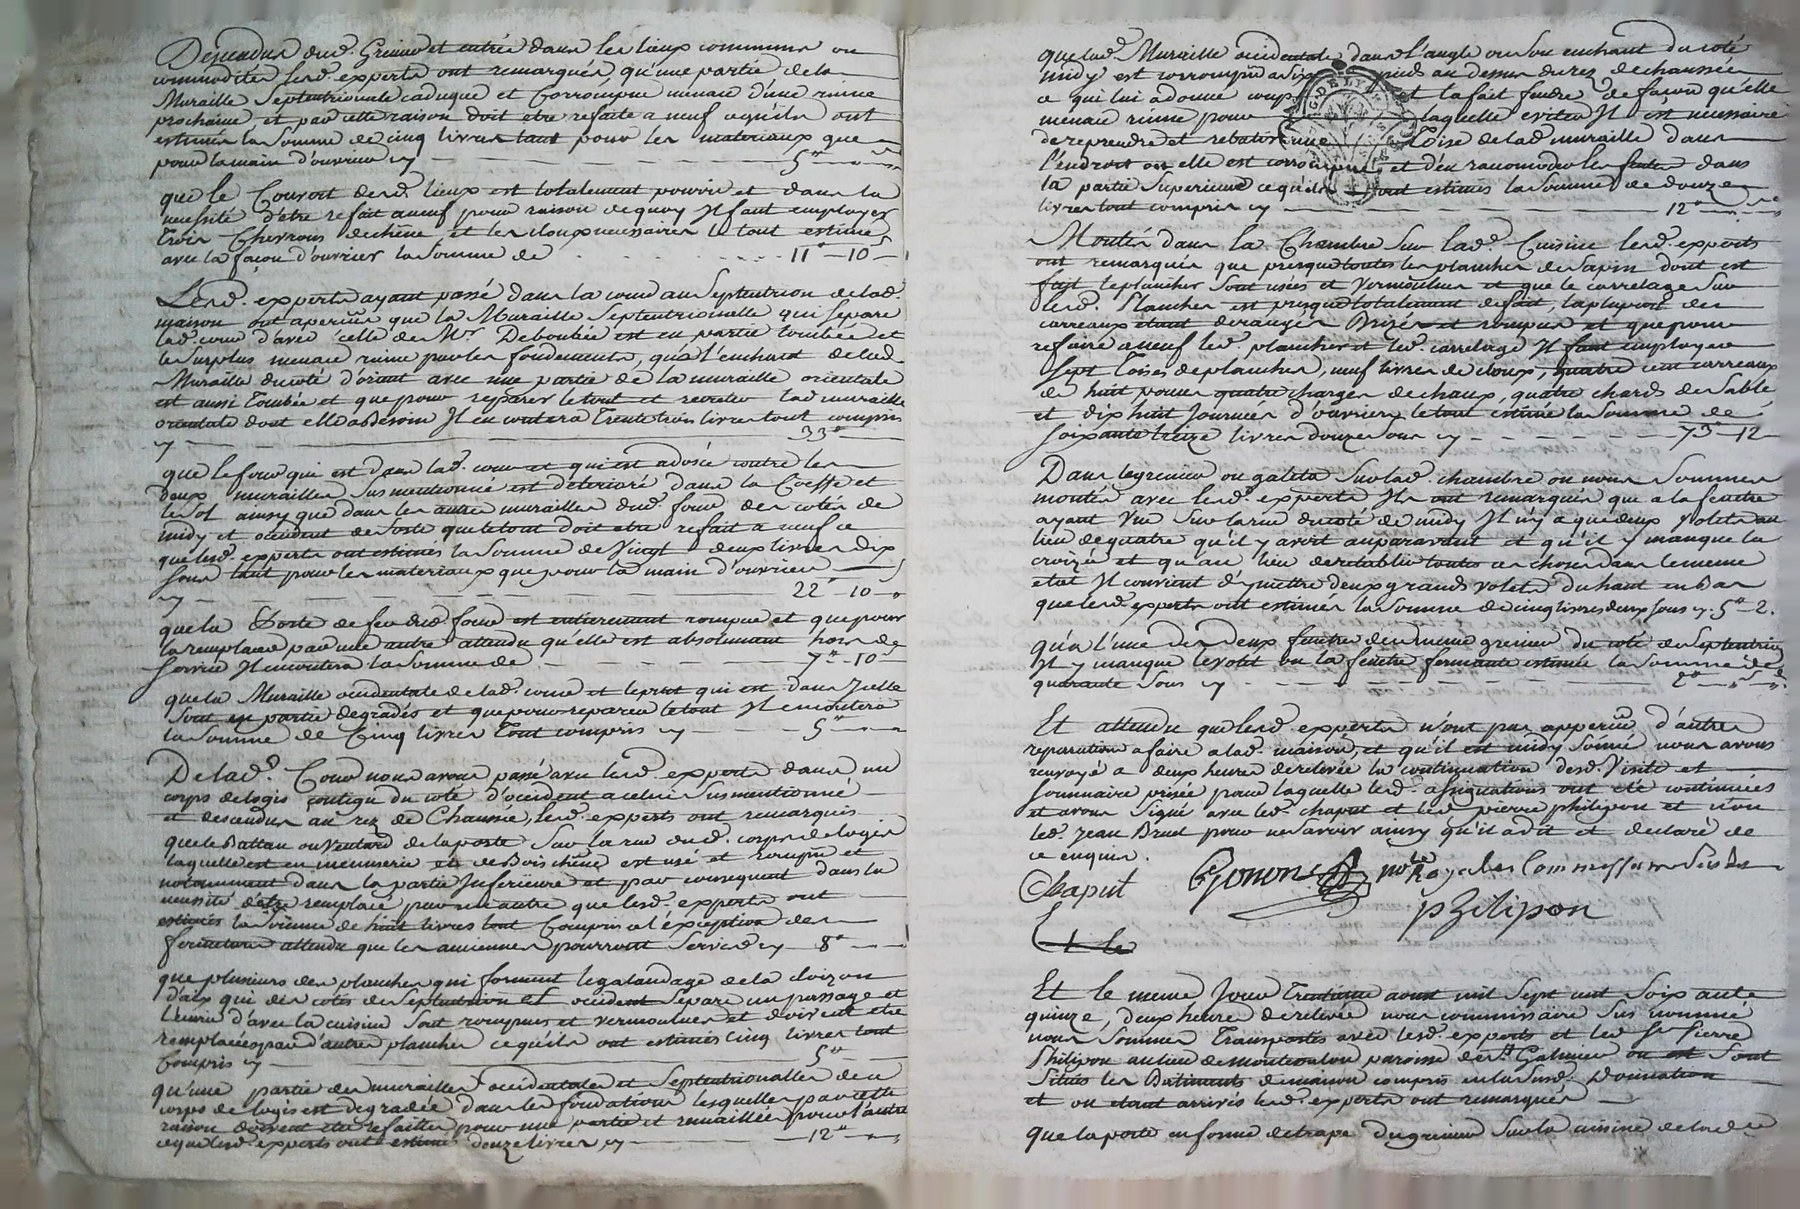 Descendus dud. Grenier et entrés dans les lieux communs ou
commodités lesd. experts ont remarqués qu'une partie de la
Muraille Septentrionale caduque et Corrompue menace d'une ruine
prochaine et par cette raison doit etre refaite a neuf ce qu'ils ont
estimés la somme de cinq livres tant pour les materiaux que
pour la main d'ouvrier cy 5
que le Couvert desd. lieux est totalement pourris et dans la
necessité d'etre refait a neuf pour raison de quoy Il faut employer
trois Chevrons de chêne et les cloux necessaires le tout estimé
avec la façon d'ouvrier la somme de 11 10
Lesd. experts ayant passé dans la cour au Septentrion de lad.
maison ont aperçus que la Muraille Septentrionelle qui separe
lad. cour d'avec celle de Mr. Deboubée est en partie tombée et
le surplus menace ruine par les fondements, qu'a l'enchant de lad.
Muraille du coté d'orient avec une partie de la muraille orientale
est aussi tombée et que pour reparer le tout et recreter lad muraille
orientale dont elle a besoin Il en coutera Trente trois livres tout compris
cy 33
que le four qui est dans lad. cour et qui est adosée contre les
deux murailles susmentionné est deterioré dans la Coeffe et
le sol ainsy que dans les autres murailles dud. four des cotés de
midy et occident de sorte que le tout doit etre refait a neuf ce
que lesd. experts ont estimés la somme de Vingt deux livres Dix
sous tant pour les materiaux que pour la main d'ouvrier
cy 22 10
que la Porte de feu dud. four est entierement rompue et que pour
la remplacer par une autre attendu qu'elle est absolument hors de
service Il en coutera la somme de 7 10
que la Muraille occidentale de lad. cour et le puit qui est dans Icelle
sont en partie degradés et que pour reparer le tout Il en coutera
la somme de Cinq livres tout compris cy 5
De lad. Cour nous avons passé avec lesd. experts dans un
corps de logis contigu du coté d'occident a celui susmentionné
et descendus au rez de Chaussée, lesd. experts ont remarqués
que le Battan ou Ventard de la porte sur la rue dud. corps de logis
laquelle est en menuserie et de Bois chêne est usé et rompu et
notamment dans la partie Inferieure et par consequent dans la
necessité d'etre remplacé par un autre que lesd. experts ont
estimés la somme de huit livres tout Compris a l'exception des
fermetures attendu que les anciennes pourront servir cy 8
que plusieurs des planches qui forment le galandage de la cloizon
d'aix qui des cotés de Septentrion et occident separe un passage et
l'ecurie d'avec la cuisine sont rompues et vermoulues et doivent etre
remplacées par d'autres planches ce qu'ils ont estimés Cinq livres tout
Compris cy 5
qu'une partie des murailles occidentales et Septentrionalles de ce
corps de logis est degradée dans les fondations lesquelles par cette
raison doivent etre refaites pour une partie et remaillée pour l'autre
ce que lesd. experts ont estimé douze livres cy 12
que lad. Muraille occidentale dans l'angle ou son enchant du coté
midy est corrompue a six pieds au dessus du rez de chaussée
ce qui lui a donné coup et la fait fendre de façon qu'elle
menace ruine pour laquelle eviter Il est necessaire
de reprendre et rebatir une Toise de lad. muraille dans
l'endroit ou elle est corrompue et d'en racomoder les fentes dans
la partie Superieure ce qu'ils ont estimés la Somme de douze
livres tout compris cy 12
Montés dans la Chambre sur lad. Cuisine lesd. experts
ont remarqués que presque toutes les planches de sapin dont est
fait le plancher sont usées et vermoulues et que le carrelage sur
led. Plancher est presque totalement defait, la plupart des
carreaux etant derangés Brisés et rompus et que pour
refaire a neuf led. plancher et led. carrelage Il faut employer
Sept Toises de plancher, neuf livres de cloux, quatre cent carreaux
de huit pouces quatre charges de chaux, quatre chards de sable
et dix huit Journées d'ouvriers le tout estimé la somme de
soixante treize livres douze sous cy 73 12
Dans le grenier ou galeta sur lad. chambre ou nous sommes
montés avec lesd. experts Ils ont remarqués que a la fenetre
ayant Vue sur la rue du coté de midy Il n'y a que deux Volets au
lieu de quatre qu'il y avoit auparavant et qu'il y manque la
croizée et qu'au lieu de retablir toutes ces choses dans le meme
etat Il convient d'y mettre deux grands volets du haut en Bas
que lesd. experts ont estimés la somme de cinq livres deux sous cy 5 2.
qu'a l'une des deux fenetres de ce meme grenier du coté de Septentrion
Il y manque le volet ou la fenetre fermante estimée la somme de
quarante sous cy 2
Et attendu que lesd. experts n'ont pas apperçus d'autres
reparations a faire a lad. maison et qu'il est midy sonné nous avons
renvoyé a deux heures de relevée la continuation desd. Visite et
sommaire prisée pour laquelle lesd. assignations ont été continuées
et avons signé avec led. chaput et led. pierre philipon et non
led. Jean Bruel pour ne savoir ainsy qu'il a dit et declaré de
ce enquis.
Chaput Gonon nore Royal et Commissaire Susd
pZilipon
Et le
Et le meme Jour Trentieme aoust mil sept cent soixante
quinze, deux heures de relevée nous commissaire sus nommé
nous sommes Transportés avec lesd. experts et led Sr. Pierre
Philipon au lieu de montcoulou paroisse de St. Galmier ou est sont
Situés les Batiments de maison compris en la susd. Donnation
et ou etant arrivés lesd. experts ont remarqués
que la porte en forme de trape du grenier sur la cuisine de lad